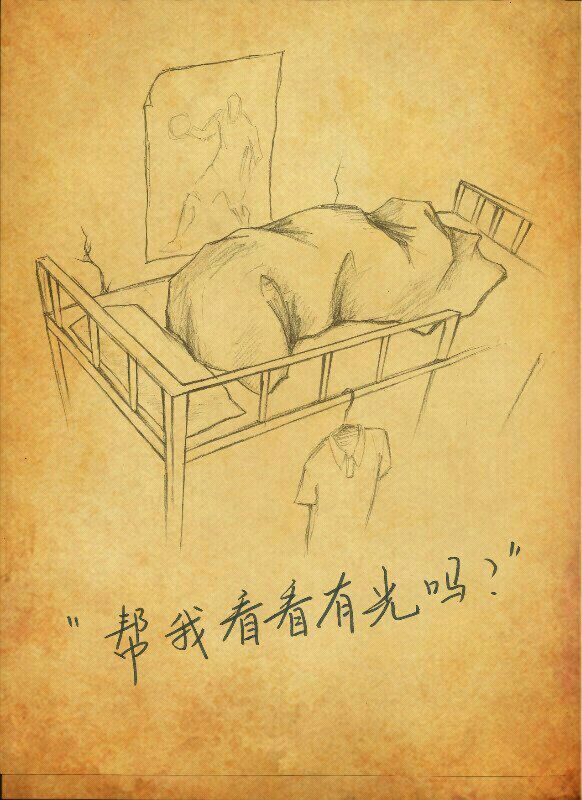 "帮我看看有光吗?"